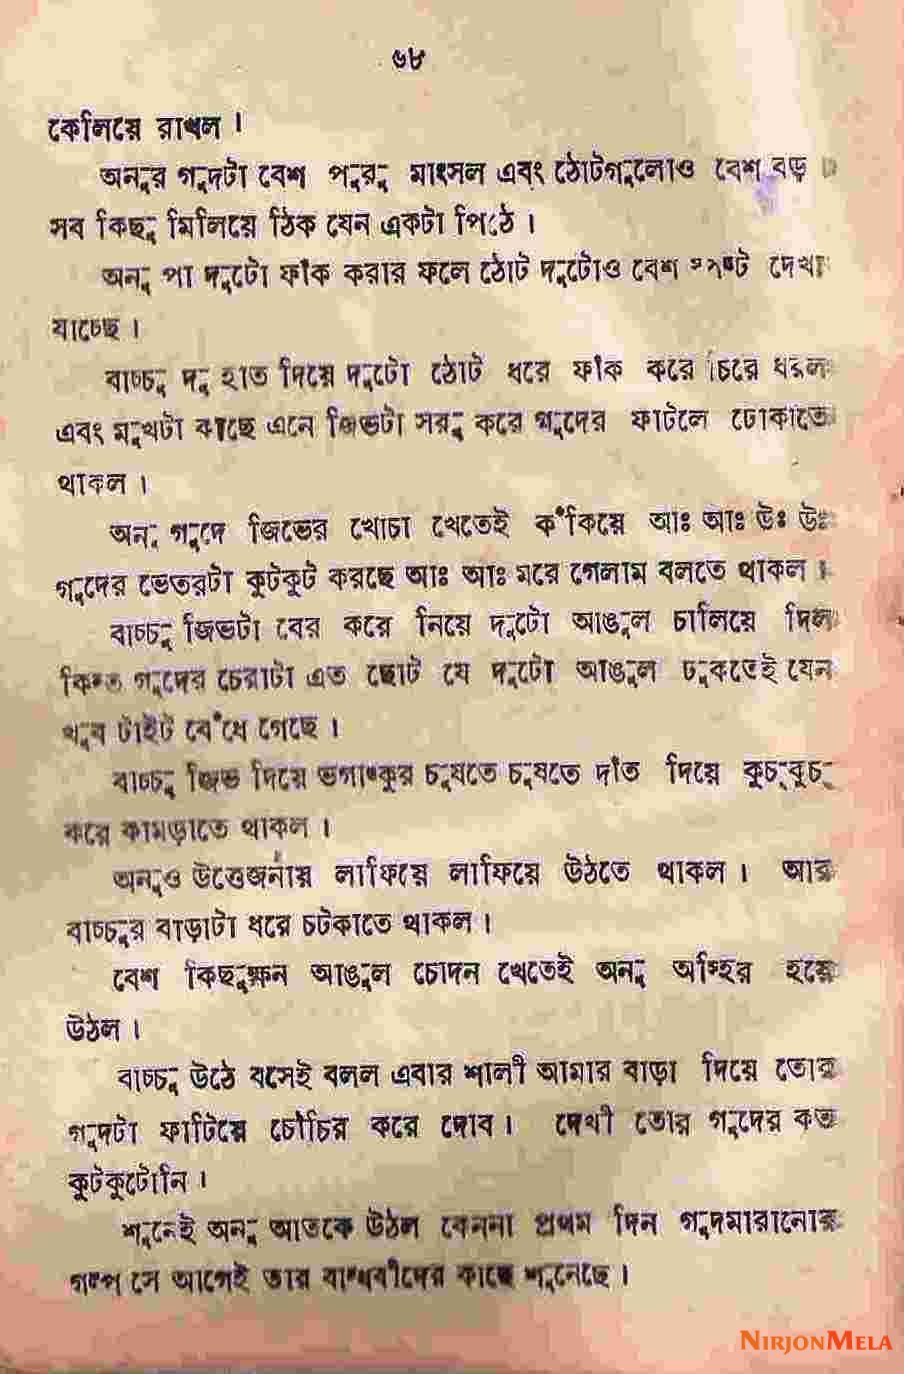 ৬৮
কেলিয়ে রাখল ।
অনুর গুদটা বেশ পুরু মাংসল এবং ঠোটগুলোও বেশ বড়
সব কিছু মিলিয়ে ঠিক যেন একটা পিঠে ।
অনু পা দুটো ফাঁক করার ফলে ঠোট দুটোও বেশ স্পষ্ট দেখা
যাচ্ছে ।
বাচ্চু দু হাত দিয়ে দুটো ঠোট ধরে ফাঁক করে চিরে ধরল
এবং মুখটা কাছে এনে জিভটা সরু করে গুদের ফাটলে ঢোকাতে
থাকল ।
অনু গুদে জিভের খোচা খেতেই কঁকিয়ে আঃ আঃ উঃ উঃ
গুদের ভেতরটা কুটকুট করছে আঃ আঃ মরে গেলাম বলতে থাকল ।
বাচ্চু জিভটা বের করে নিয়ে দুটো আঙুল চালিয়ে দিল
কিন্তু গুদের চেরাটা এত ছোট যে দুটো আঙুল ঢুকতেই যেন
খুব টাইট বেঁধে গেছে ।
বাচ্চু জিভ দিয়ে ভগাঙ্কুর চুষতে চুষতে দাঁত দিয়ে কুচুবুচু
করে কামড়াতে থাকল ।
অনুও উত্তেজনায় লাফিয়ে লাফিয়ে উঠতে থাকল । আর
বাচ্চুর বাড়াটা ধরে চটকাতে থাকল ।
বেশ কিছুক্ষন আঙুল চোদন খেতেই অনু অস্হির হয়ে
উঠল ।
বাচ্চু উঠে বসেই বলল এবার শালী আমার বাড়া দিয়ে তোর
গুদটা ফাটিয়ে চৌচির করে দোব । দেখী তোর গুদের কত
কুটকুটোনি ।
শুনেই অনু আতকে উঠল কেননা প্রথম দিন গুদমারানোর
গল্প সে আগেই তার বান্ধবীদের কাছে শুনেছে ।
NIRJONMELA